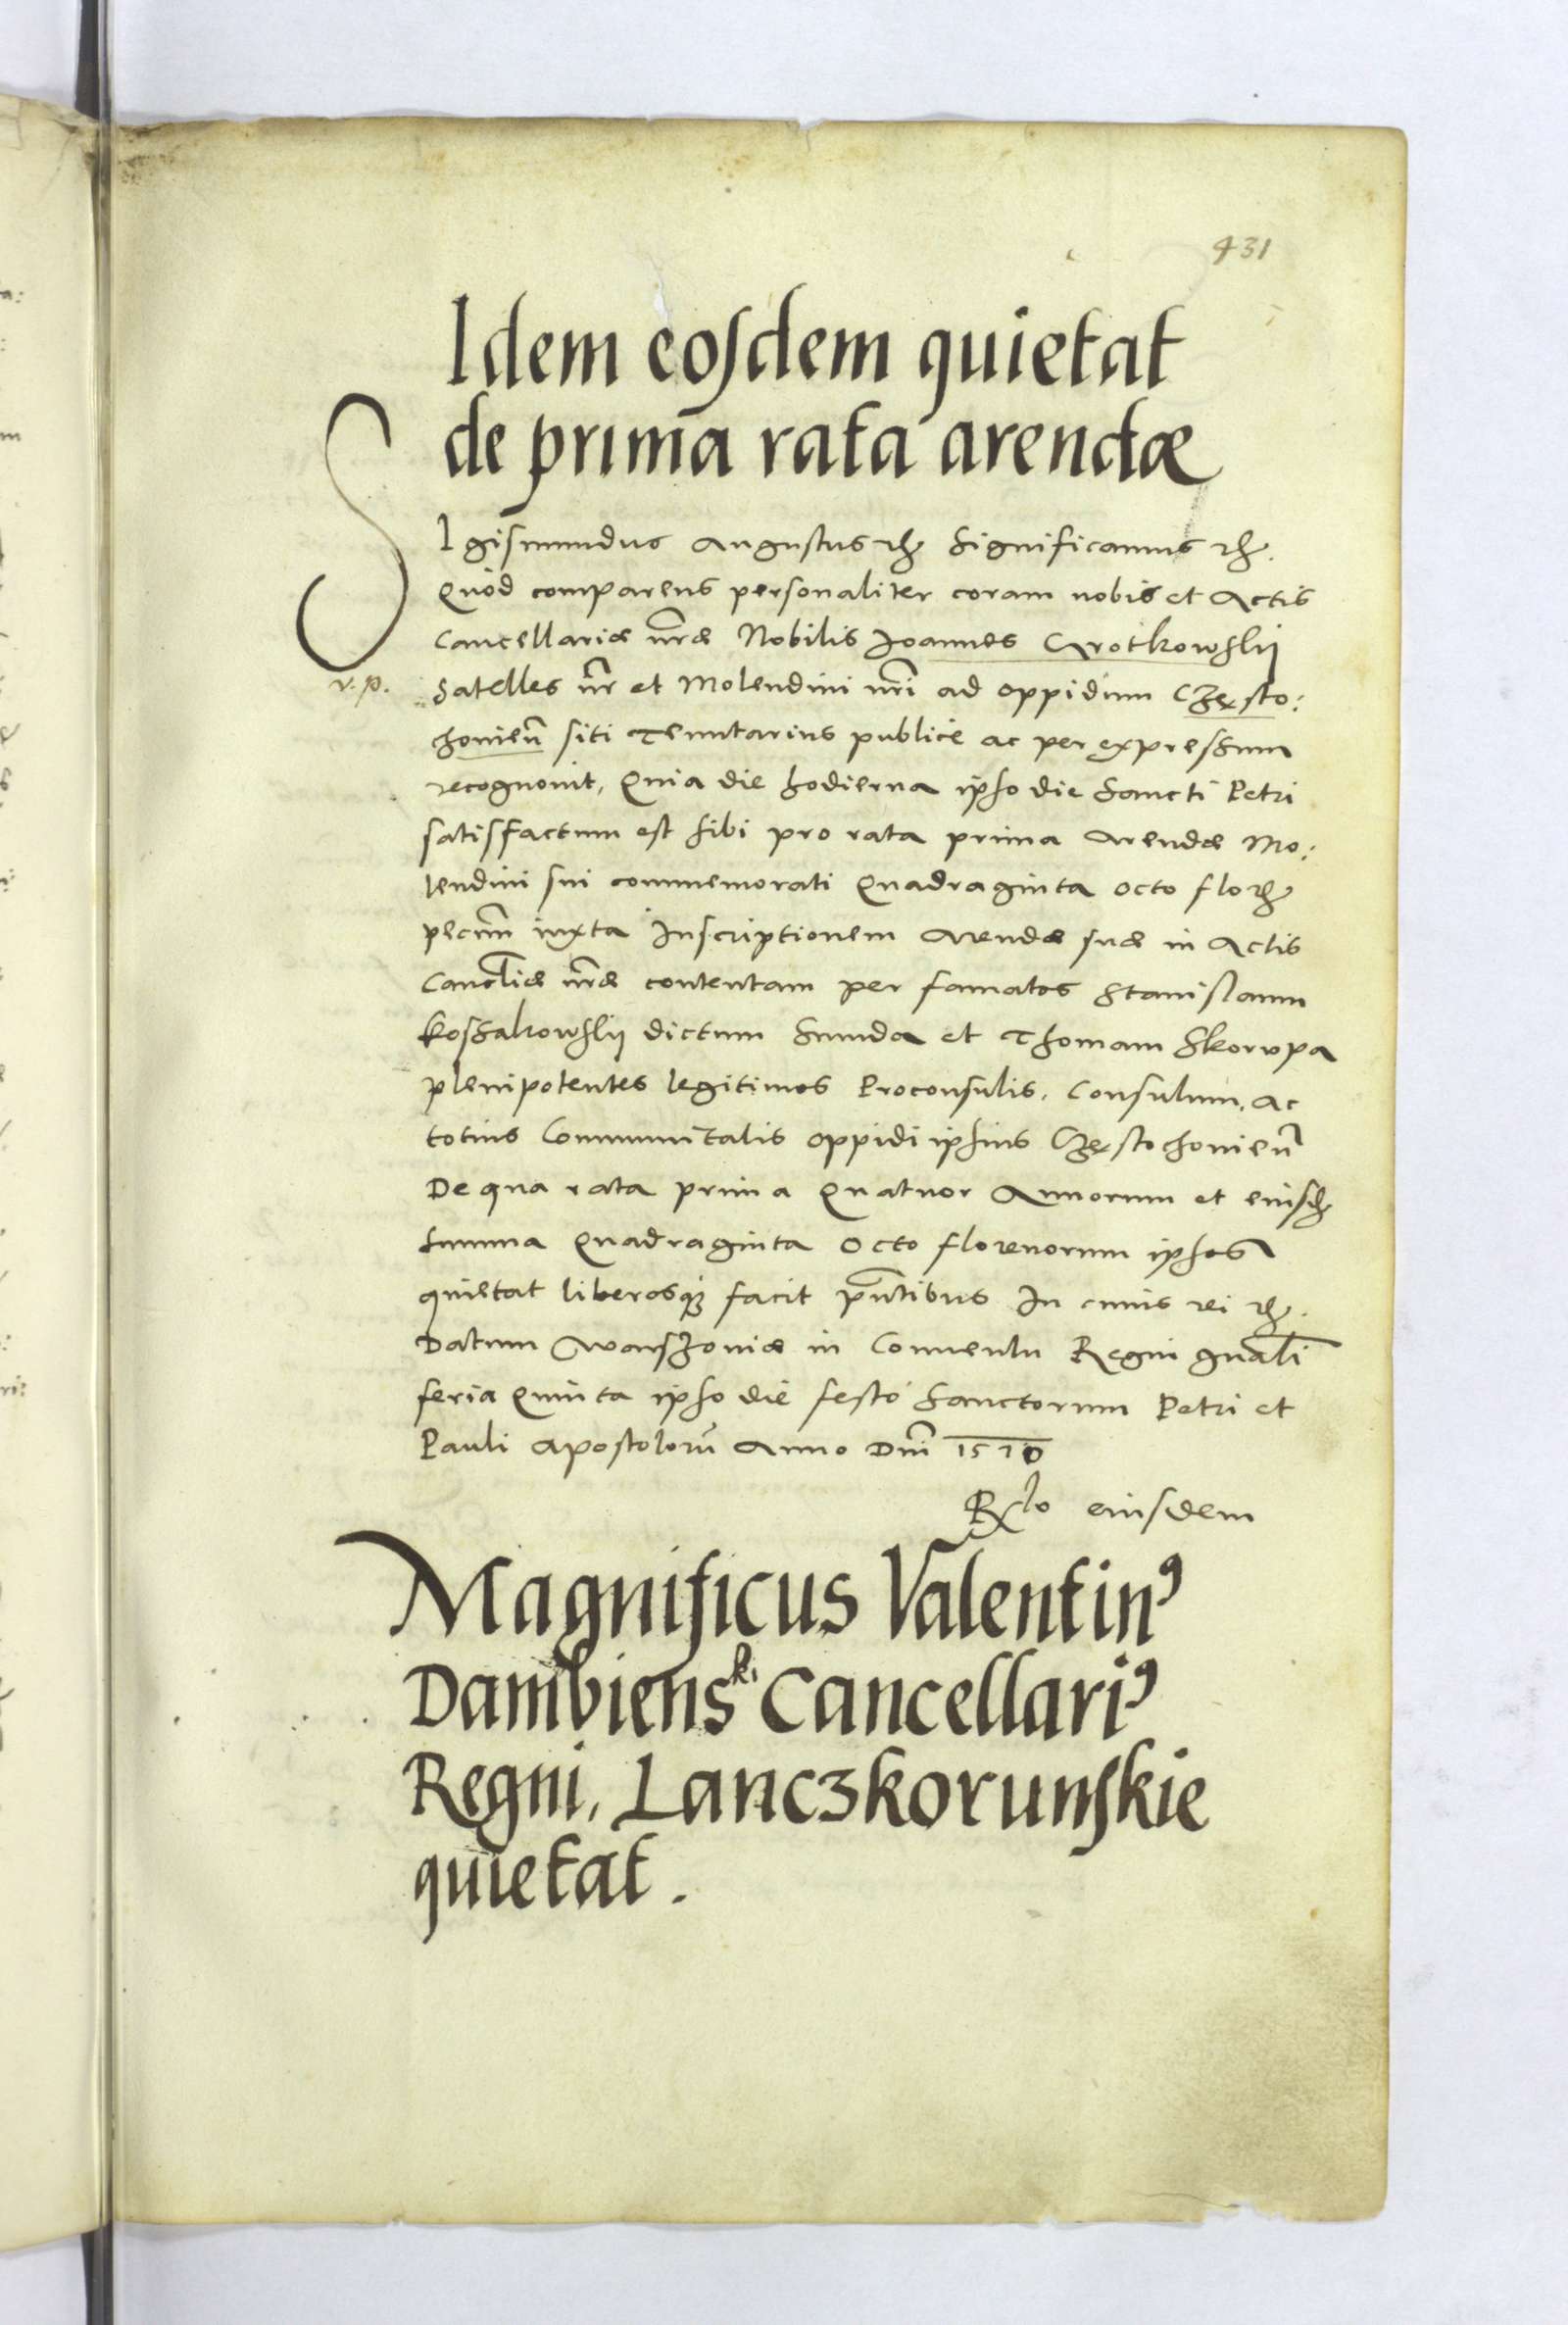 431
Idem eosdem quietat
de prima rata arendæ
SIgismundus Augustus etc Significamus etc.
Quòd comparens personaliter coram nobis et Actis
Cancellariæ nr̃æ Nobilis Joannes Crotkowskÿ
v. p.
Satelles nr̃ et Molendini nr̃i ad oppidum Czesto:
chouień siti Tenutarius publicè ac per expressum
recognouit, Quia die hodierna ipso die Sancti Petri
satisfactum est sibi pro rata prima Arendæ Mo:
lendini sui commemorati Quadraginta octo flor
pecun̄ iuxta Inscriptionem Arendæ suæ in Actis
Canc̄liæ nr̃æ contentam per famatos Stanislaum
Kossakowskÿ dictum et Thomam Skorupa
plenipotentes legitimos Proconsulis, Consulum, ac
totius Communitatis oppidi ipsius Czestochouień
De qua rata prima Quatuor Annorum et eiusdē
summa Quadraginta Octo florenorum ipsos
quietat liberosq́ȝ facit pñtibus In cuius rei etc.
Datum Warszouiæ in Conuentu Regni gñali
feria Quinta ipso die festo Sanctorum Petri et
Pauli Apostolorū Anno Dñi 1570
Rlo eiusdem
Magnificus Valentin9
Dambiensk Cancellari9
Regni, Lanczkorunskie
quietat.